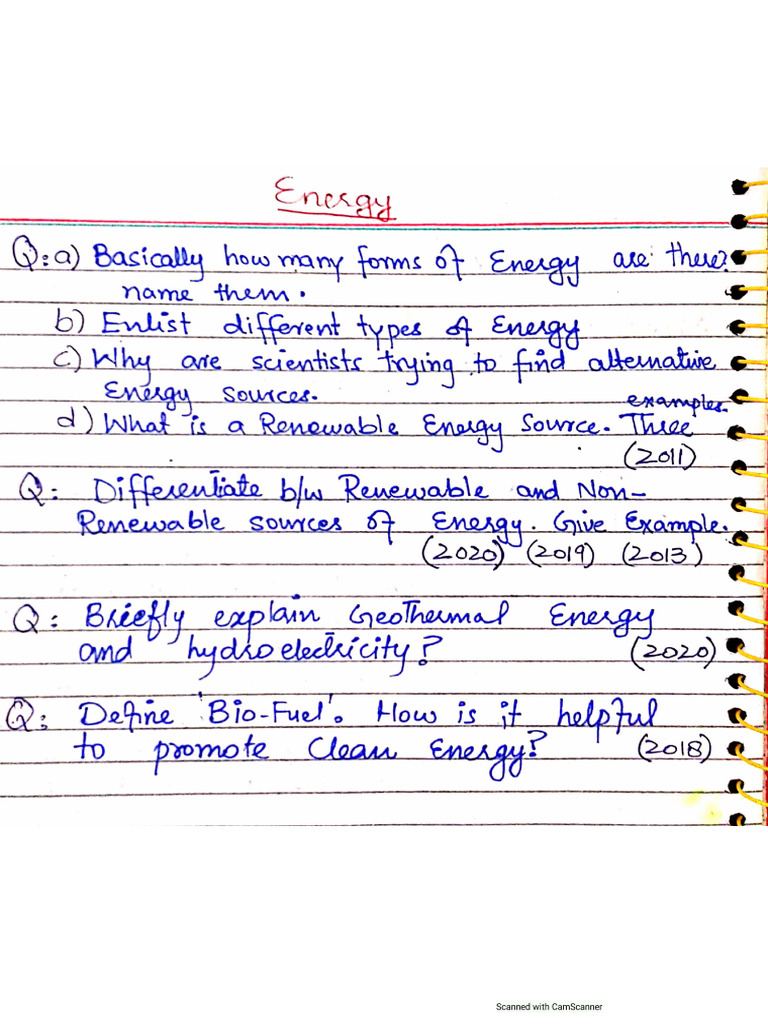 Energy
Q: a) Basically how many forms of Energy are there?
name them.
b) Enlist different types of Energy
c) Why are scientists trying to find alternative
Energy sources.
examples.
d) What is a Renewable Energy Source. Three
(2011)
Q: Differentiate b/w Renewable and Non-
Renewable sources of Energy. Give Example.
(2020) (2019) (2013)
Q: Briefly explain Geothermal Energy
and hydroelectricity? (2020)
Q: Define 'Bio-Fuel'. How is it helpful
to promote Clean Energy? (2018)
Scanned with CamScanner